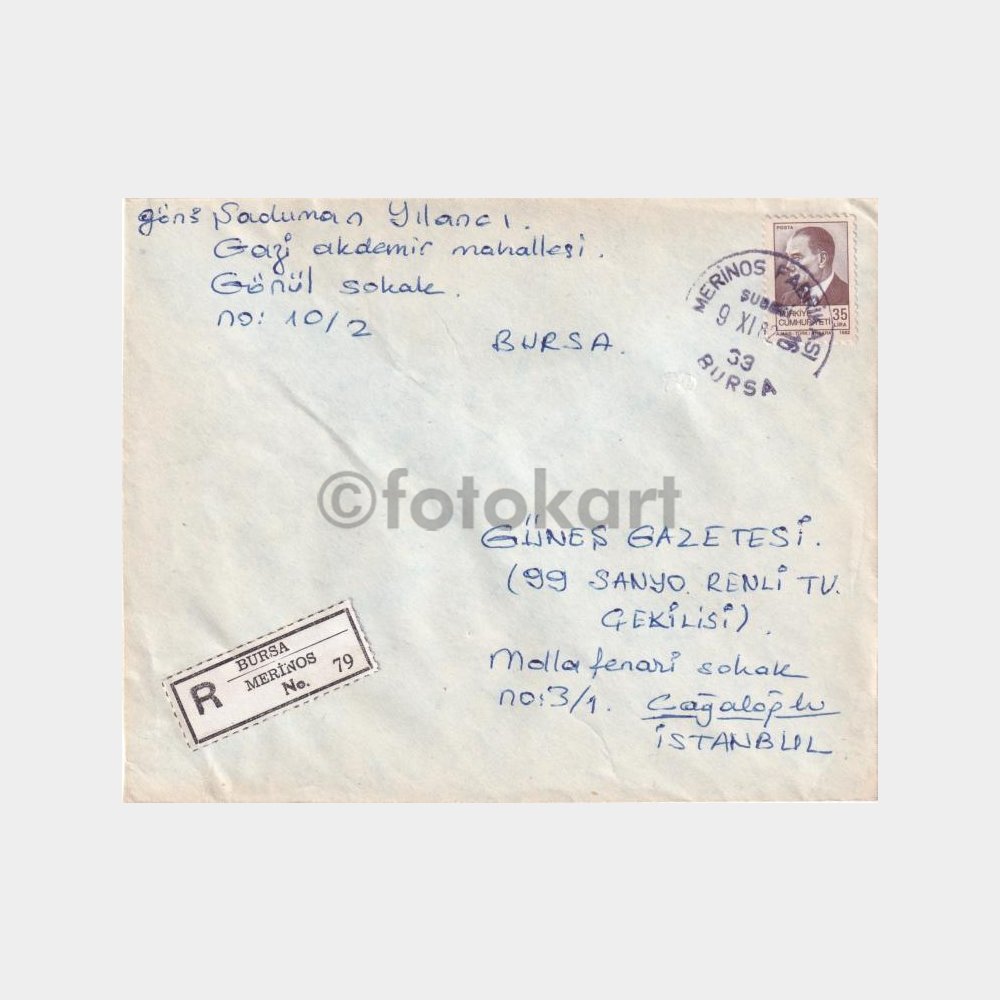 gönş Şaduman Yılancı.
Gazi akdemir mahallesi.
Gönül sokak.
no: 10/2
BURSA.
POSTA
TÜRKİYE
CUMHURİYETİ
35
LİRA
1982
MERİNOS FABRİKASI
ŞUBESİ
9 XI 82
BURSA
©fotokart
GÜNEŞ GAZETESİ.
(99 SANYO. RENLİ TV.
ÇEKİLİSİ).
Molla fenari sokak
no:3/1. Cağaloğlu
İSTANBUL
R
BURSA
MERİNOS
No. 79